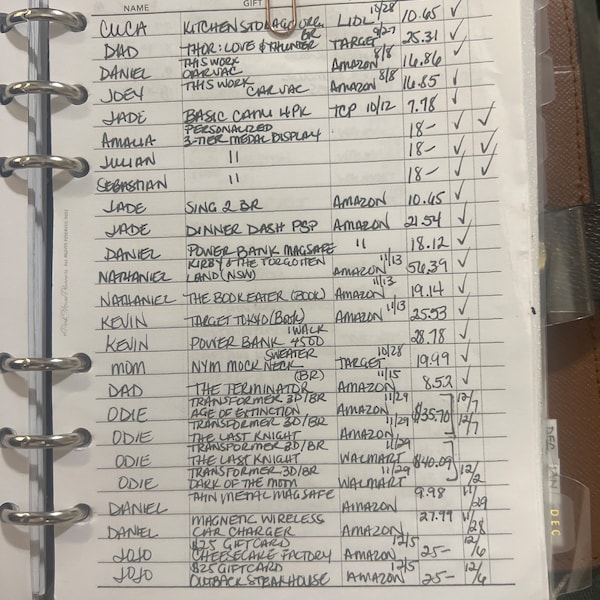 NAME GIFT
CUCA KITCHEN STORAGE ORG. LIDL 10/28 10.65 ✓
DAD THOR: LOVE & THUNDER BR TARGET 9/27 25.31 ✓
DANIEL THIS WORK CAR VAC AMAZON 8/8 16.86 ✓
JOEY THIS WORK CAR VAC AMAZON 8/8 16.85 ✓
JADE BASIC CAMI 4PK TCP 10/12 7.78 ✓
AMALIA PERSONALIZED 3-TIER MEDAL DISPLAY 18- ✓ ✓
JULIAN " 18- ✓ ✓
SEBASTIAN " 18- ✓ ✓
JADE SING 2 BR AMAZON 10.65 ✓
JADE DINNER DASH PSP AMAZON 21.54 ✓
DANIEL POWER BANK MAGSAFE " 18.12 ✓
NATHANIEL KIRBY & THE FORGOTTEN LAND (NSW) AMAZON 11/13 56.39 ✓
NATHANIEL THE BOOK EATER (BOOK) AMAZON 11/13 19.14 ✓
KEVIN TARGET TOKYO (BOOK) AMAZON 11/13 25.53 ✓
KEVIN POWER BANK IWALK 4500 28.78 ✓
MOM NYM MOCK NECK SWEATER TARGET 10/28 19.99 ✓
DAD THE TERMINATOR (BR) AMAZON 11/15 8.52 ✓
ODIE TRANSFORMER 3D/BR AGE OF EXTINCTION AMAZON 11/29 $35.70 12/7
ODIE TRANSFORMER 3D/BR THE LAST KNIGHT AMAZON 11/29 12/7
ODIE TRANSFORMER 3D/BR THE LAST KNIGHT WALMART 11/29 $40.09
ODIE TRANSFORMER 3D/BR DARK OF THE MOON WALMART 11/29 12/2
DANIEL THIN METAL MAGSAFE AMAZON 9.98 11/29
DANIEL MAGNETIC WIRELESS CAR CHARGER AMAZON 27.99 11/28
JOJO $25 GIFTCARD CHEESECAKE FACTORY AMAZON 12/5 25- 12/6
JOJO $25 GIFTCARD OUTBACK STEAKHOUSE AMAZON 12/5 25- 12/6
JAN
DEC
DEC